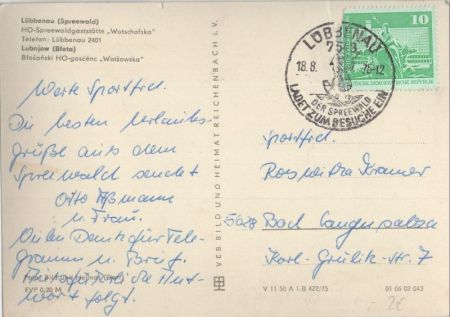 Lübbenau (Spreewald)
HO-Spreewaldgaststätte „Wotschofska“
Telefon: Lübbenau 2401
Lubnjow (Błota)
Błośański HO-gosćeńc „Wótšowska“
LÜBBENAU
7543
18.8. 76-12
DER SPREEWALD
LADET ZUM BESUCHE EIN
10
DEUTSCHE DEMOKRATISCHE REPUBLIK
Werte Sportfrd.
Die besten Urlaubs-
grüße aus dem
Spreewald sendet
Otto Aßmann
u. Frau.
Vielen Dank für Tele-
gramm u. Brief.
wort folgt.
EVP 0,20 M
VEB BILD UND HEIMAT REICHENBACH I. V.
Sportfrd.
Roswitha Kramer
Bad Langensalza
Karl-Grülik-Str. 7
V 11 50 A 1.B 422/75
01 06 02 043
2€